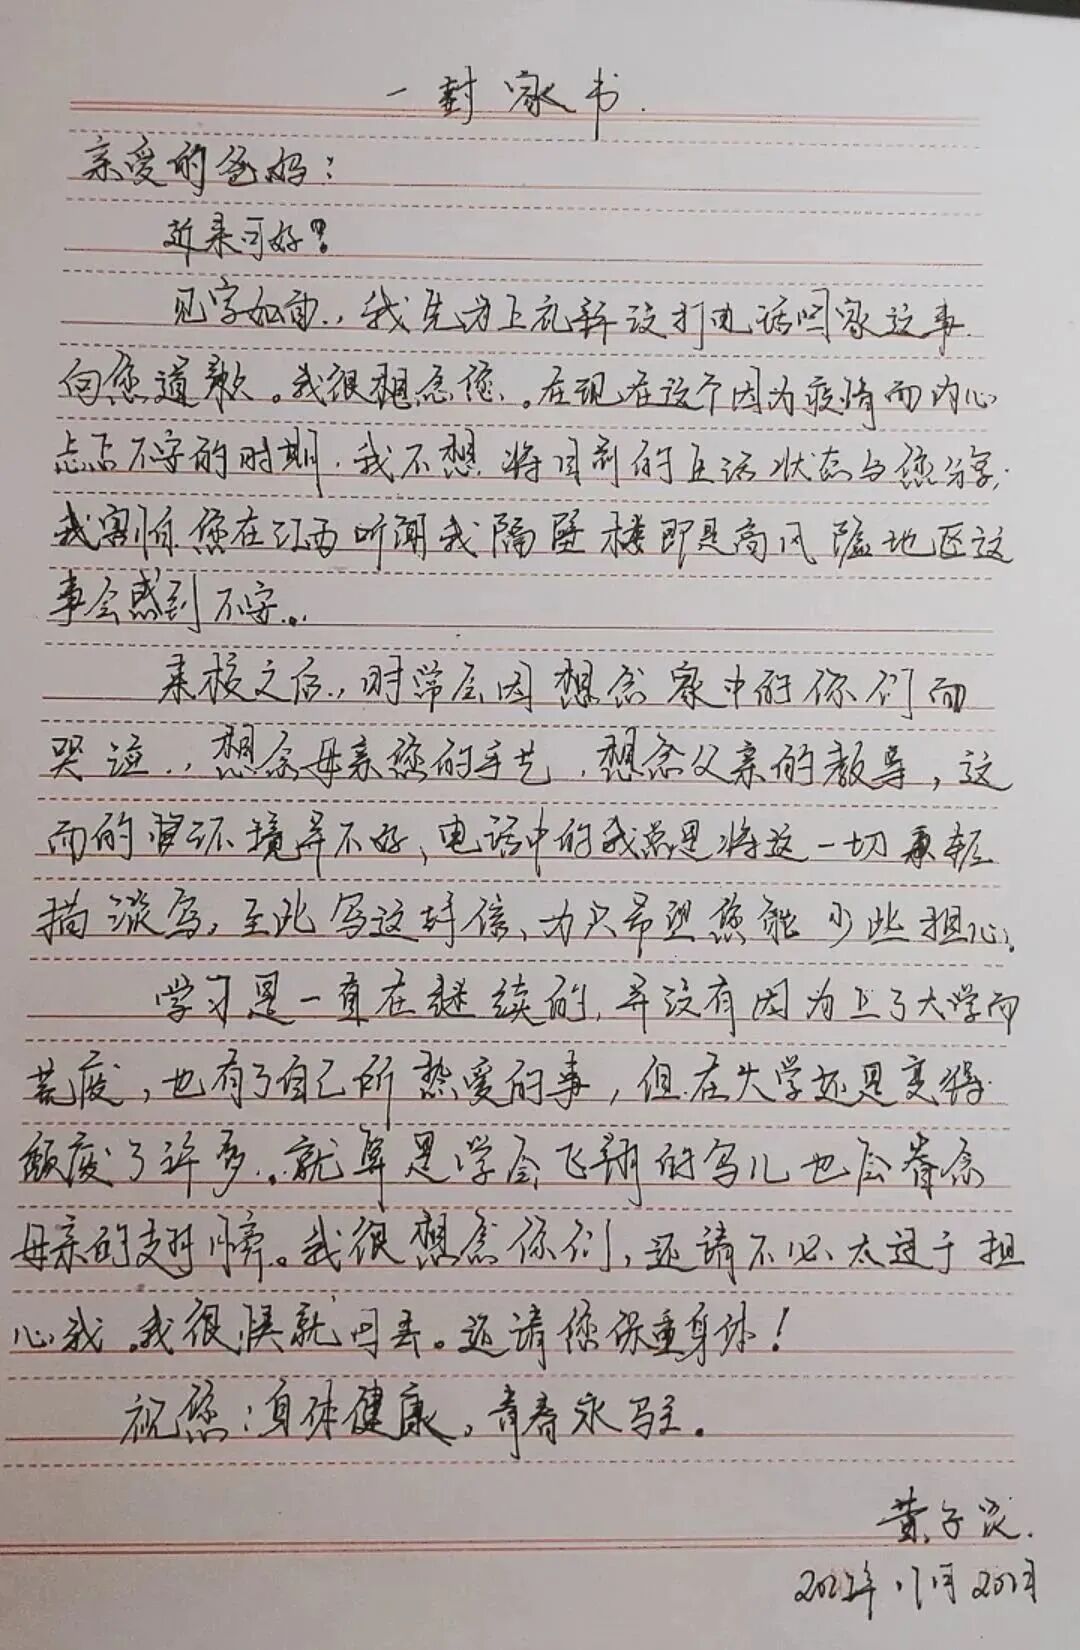 一封家书.
亲爱的爸妈：
近来可好？
见字如面，我先为上礼拜没打电话回家这事
向您道歉。我很想念您。在现在这个因为疫情而内心
忐忑不宁的时期，我不想将目前的生活状态与您分享，
我害怕您在江西听闻我隔壁楼即是高风险地区这
事会感到不安。
来校之后，时常会因想念家中的你们而
哭泣，想念母亲您的手艺，想念父亲的教导，这
而的 环境并不好、电话中的我总是将这一切 轻
描淡写，至此写这封信、 只希望您能少些担心。
学习是一直在继续的，并没有因为上了大学而
荒废，也有了自己所热爱的事，但在大学还是变得
颓废了许多。就算是学会飞翔的鸟儿也会眷念
母亲的 。我很想念你们，还请不必太过于担
心我。我很快就回去。还请您保重身体！
祝您：身体健康，青春永驻。
黄子
2022年11月20日